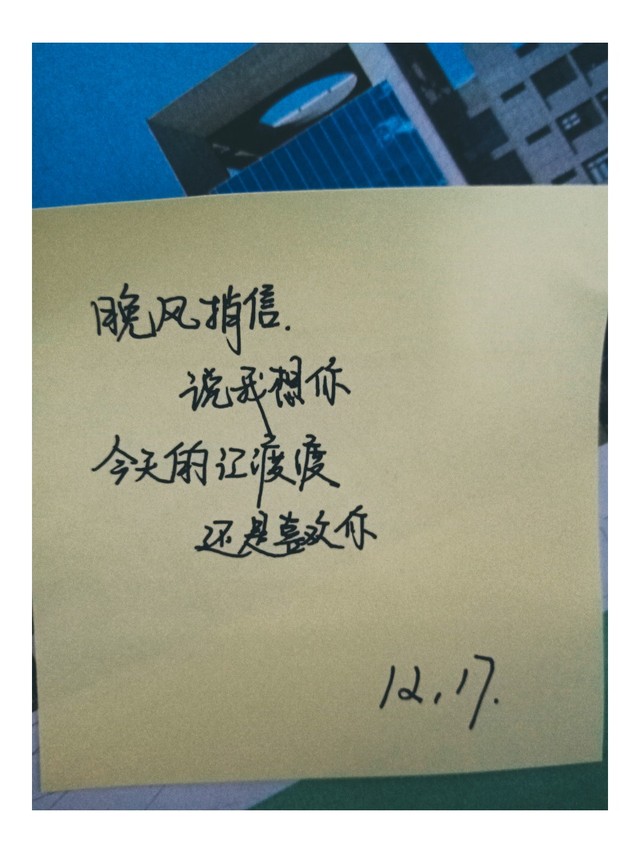 晚风捎信.
说我想你
今天的江渡渡
还是喜欢你
12.17.